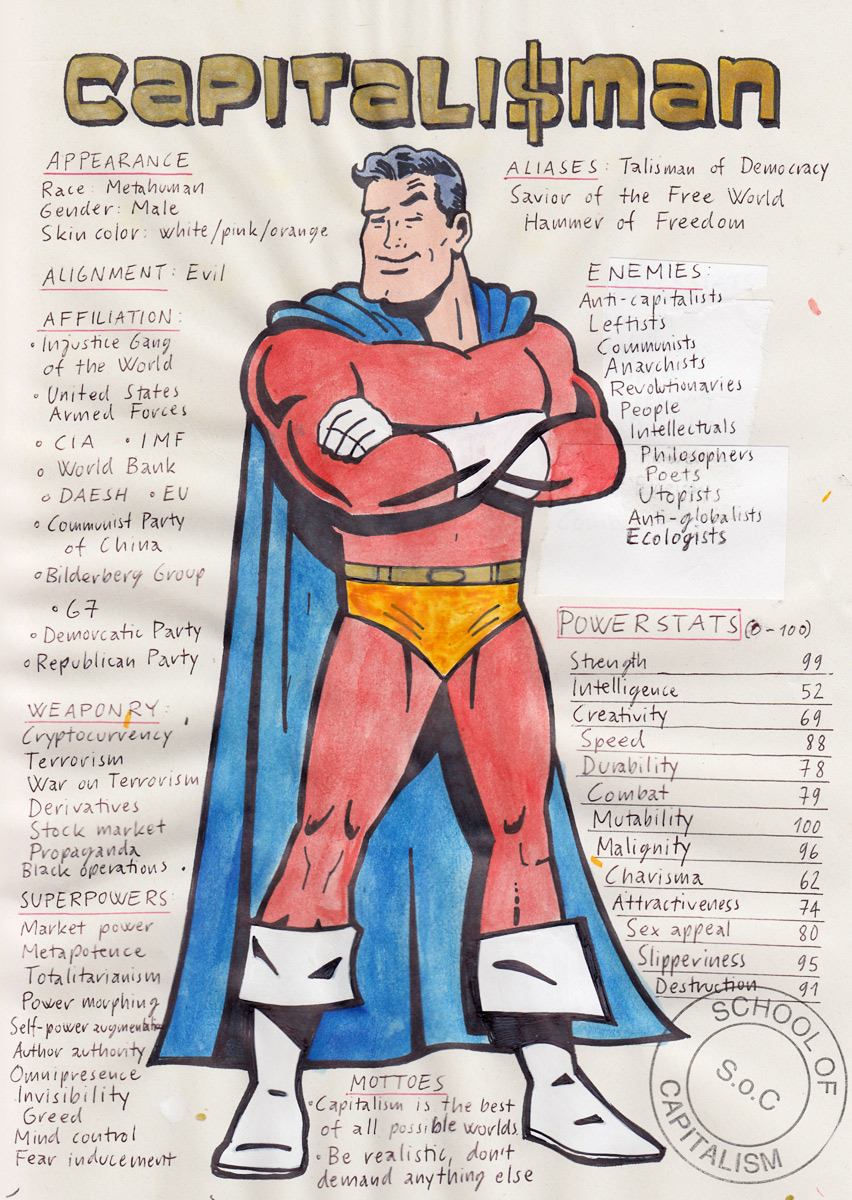 CAPITALI$MAN
APPEARANCE
Race: Metahuman
Gender: Male
Skin color: white/pink/orange
ALIGNMENT: Evil
AFFILIATION:
• Injustice Gang
of the World
• United States
Armed Forces
• CIA • IMF
• World Bank
• DAESH • EU
• Communist Party
of China
• Bilderberg Group
• G7
• Demorcatic Party
• Republican Party
WEAPONRY:
Cryptocurrency
Terrorism
War on Terrorism
Derivatives
Stock market
Propaganda
Black operations
SUPERPOWERS:
Market power
Metapotence
Totalitarianism
Power morphing
Self-power augmentation
Author authority
Omnipresence
Invisibility
Greed
Mind control
Fear inducement
ALIASES: Talisman of Democracy
Savior of the Free World
Hammer of Freedom
ENEMIES:
Anti-capitalists
Leftists
Communists
Anarchists
Revolutionaries
People
Intellectuals
Philosophers
Poets
Utopists
Anti-globalists
Ecologists
POWERSTATS (0-100)
Strength 99
Intelligence 52
Creativity 69
Speed 88
Durability 78
Combat 79
Mutability 100
Malignity 96
Charisma 62
Attractiveness 74
Sex appeal 80
Slipperiness 95
Destruction 91
MOTTOES
• Capitalism is the best
of all possible worlds
• Be realistic, don't
demand anything else
SCHOOL OF
S.o.C
CAPITALISM